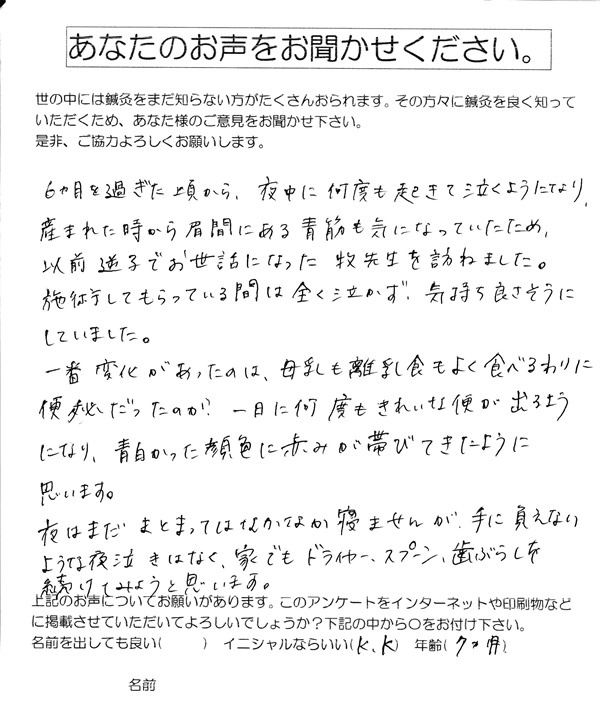 あなたのお声をお聞かせください。
世の中には鍼灸をまだ知らない方がたくさんおられます。その方々に鍼灸を良く知って
いただくため、あなた様のご意見をお聞かせ下さい。
是非、ご協力よろしくお願いします。
6ヶ月を過ぎた頃から、夜中に何度も起きて泣くようになり、
産まれた時から眉間にある青筋も気になっていたため、
以前逆子でお世話になった牧先生を訪ねました。
施術してもらっている間は全く泣かず、気持ち良さそうに
していました。
一番変化があったのは、母乳も離乳食もよく食べるわりに
便秘だったのが、一日に何度もきれいな便が出るよう
になり、青白かった顔色に赤みが帯びてきたように
思います。
夜はまだまとまってはなかなか寝ませんが、手に負えない
ような夜泣きはなく、家でもドライヤー、スプーン、歯ぶらしを
続けてみようと思います。
上記のお声についてお願いがあります。このアンケートをインターネットや印刷物など
に掲載させていただいてよろしいでしょうか？下記の中から○をお付け下さい。
名前を出しても良い(　　) イニシャルならいい(K、K) 年齢(7ヶ月)
名前